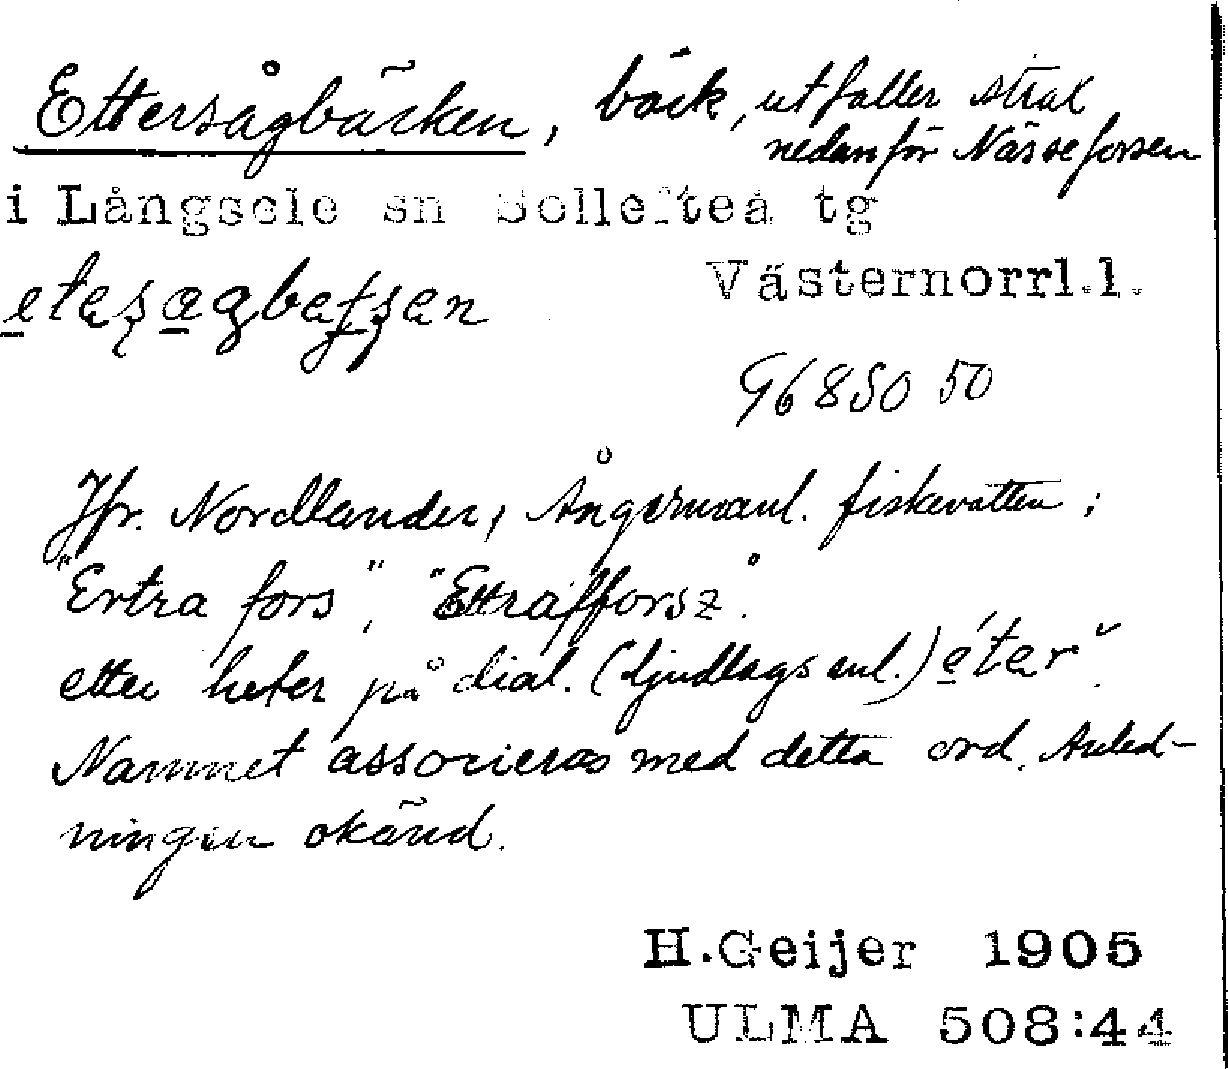 Ettersågbäcken, bäck, utfaller strax
nedanför Nässeforsen
i Långsele sn Sollefteå tg
Västernorrl.l.
96850 50
Jfr. Nordlander, Ångermanl. fiskevatten:
"Ertra fors", "Ettråfforsz".
etter heter på dial. (ljudlagsenl.) éter.
Namnet associeras med detta ord. Anled-
ningen okänd.
H.Geijer 1905
ULMA 508:44